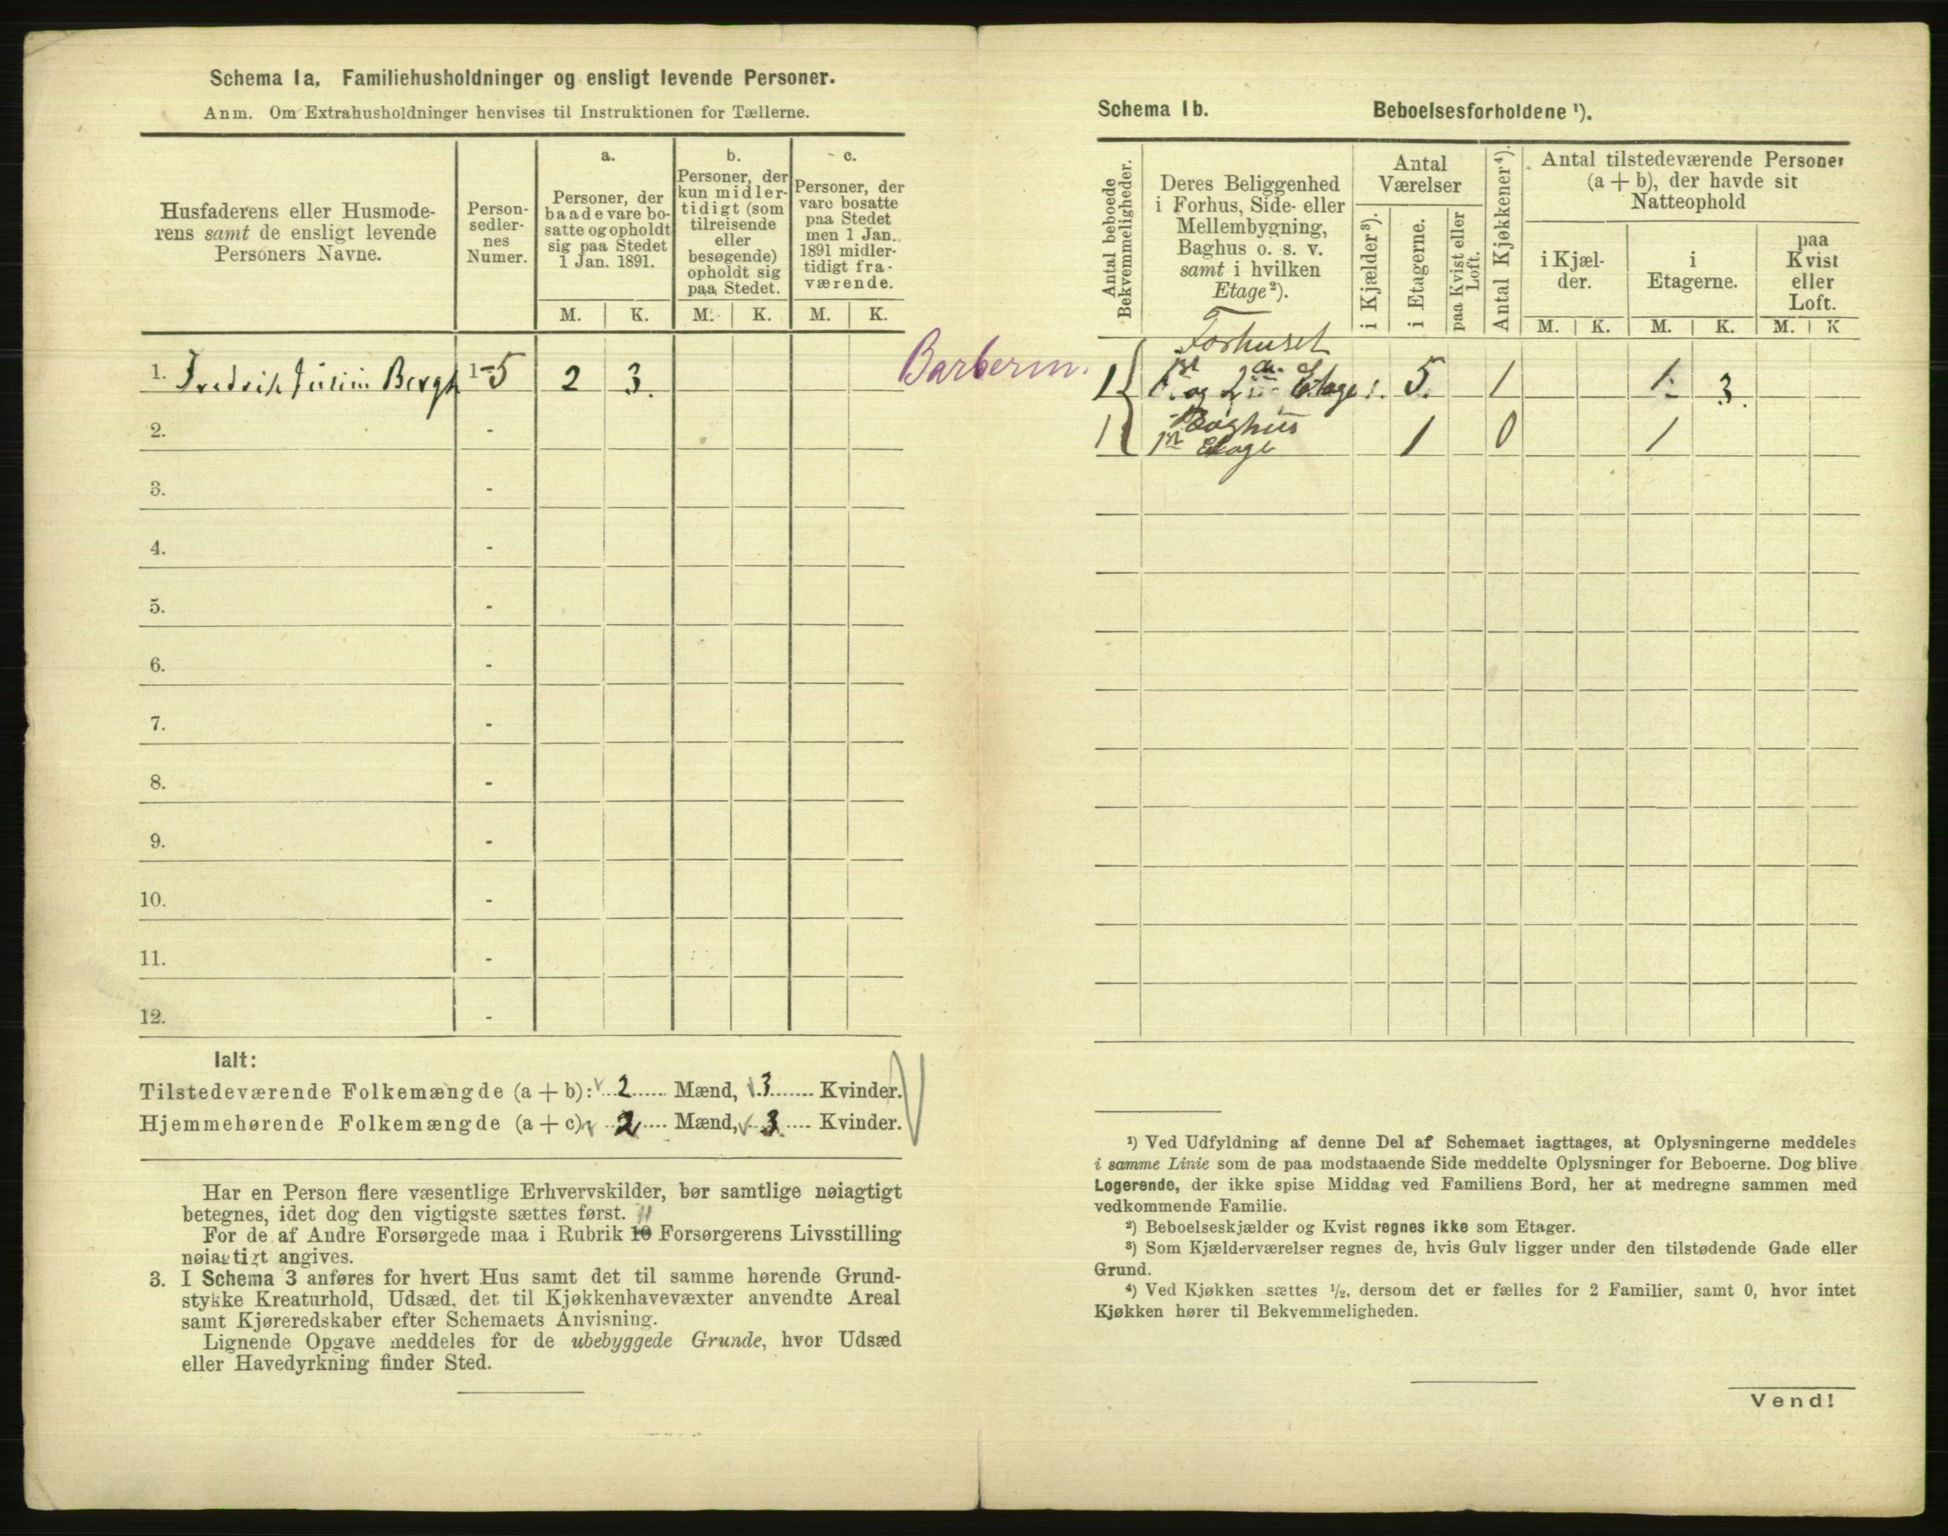 Schema 1a. Familiehusholdninger og ensligt levende Personer.
Anm. Om Extrahusholdninger henvises til Instruktionen for Tællerne.
Husfaderens eller Husmode-
rens samt de ensligt levende
Personers Navne.
Person-
sedler-
nes
Numer.
a.
Personer, der
baade vare bo-
satte og opholdt
sig paa Stedet
1 Jan. 1891.
b.
Personer, der
kun midler-
tidigt (som
tilreisende
eller
besøgende)
opholdt sig
paa Stedet.
c.
Personer, der
vare bosatte
paa Stedet
men 1 Jan.
1891 midler-
tidigt fra-
værende.
M. K. M. K. M. K.
1. Fredrik Julius Bergh 1-5 2 3.
2. -
3. -
4. -
5. -
6. -
7. -
8. -
9. -
10. -
11. -
12. -
Ialt:
Tilstedeværende Folkemængde (a + b): 2 Mænd, 3 Kvinder.
Hjemmehørende Folkemængde (a + c) 2 Mænd, 3 Kvinder.
Har en Person flere væsentlige Erhvervskilder, bør samtlige nøiagtigt
betegnes, idet dog den vigtigste sættes først.
11
For de af Andre Forsørgede maa i Rubrik 10 Forsørgerens Livsstilling
nøiagtigt angives.
3. I Schema 3 anføres for hvert Hus samt det til samme hørende Grund-
stykke Kreaturhold, Udsæd, det til Kjøkkenhavevæxter anvendte Areal
samt Kjøreredskaber efter Schemaets Anvisning.
Lignende Opgave meddeles for de ubebyggede Grunde, hvor Udsæd
eller Havedyrkning finder Sted.
Schema 1b. Beboelsesforholdene ¹).
Antal beboede
Bekvemmeligheder.
Deres Beliggenhed
i Forhus, Side- eller
Mellembygning,
Baghus o. s. v.
samt i hvilken
Etage²).
Antal
Værelser
i Kjælder³).
i Etagerne.
paa Kvist eller
Loft.
Antal Kjøkkener⁴).
Antal tilstedeværende Personer
(a + b), der havde sit
Natteophold
i Kjæl-
der.
i
Etagerne.
paa
Kvist
eller
Loft.
M. K. M. K. M. K
Barberin.
Forhuset
1 og 2 Etage 5. 1 1. 3.
Baghus
1 1st Etage 1 0 1
¹) Ved Udfyldning af denne Del af Schemaet iagttages, at Oplysningerne meddeles
i samme Linie som de paa modstaaende Side meddelte Oplysninger for Beboerne. Dog blive
Logerende, der ikke spise Middag ved Familiens Bord, her at medregne sammen med
vedkommende Familie.
²) Beboelseskjælder og Kvist regnes ikke som Etager.
³) Som Kjælderværelser regnes de, hvis Gulv ligger under den tilstødende Gade eller
Grund.
⁴) Ved Kjøkken sættes ½, dersom det er fælles for 2 Familier, samt 0, hvor intet
Kjøkken hører til Bekvemmeligheden.
Vend!